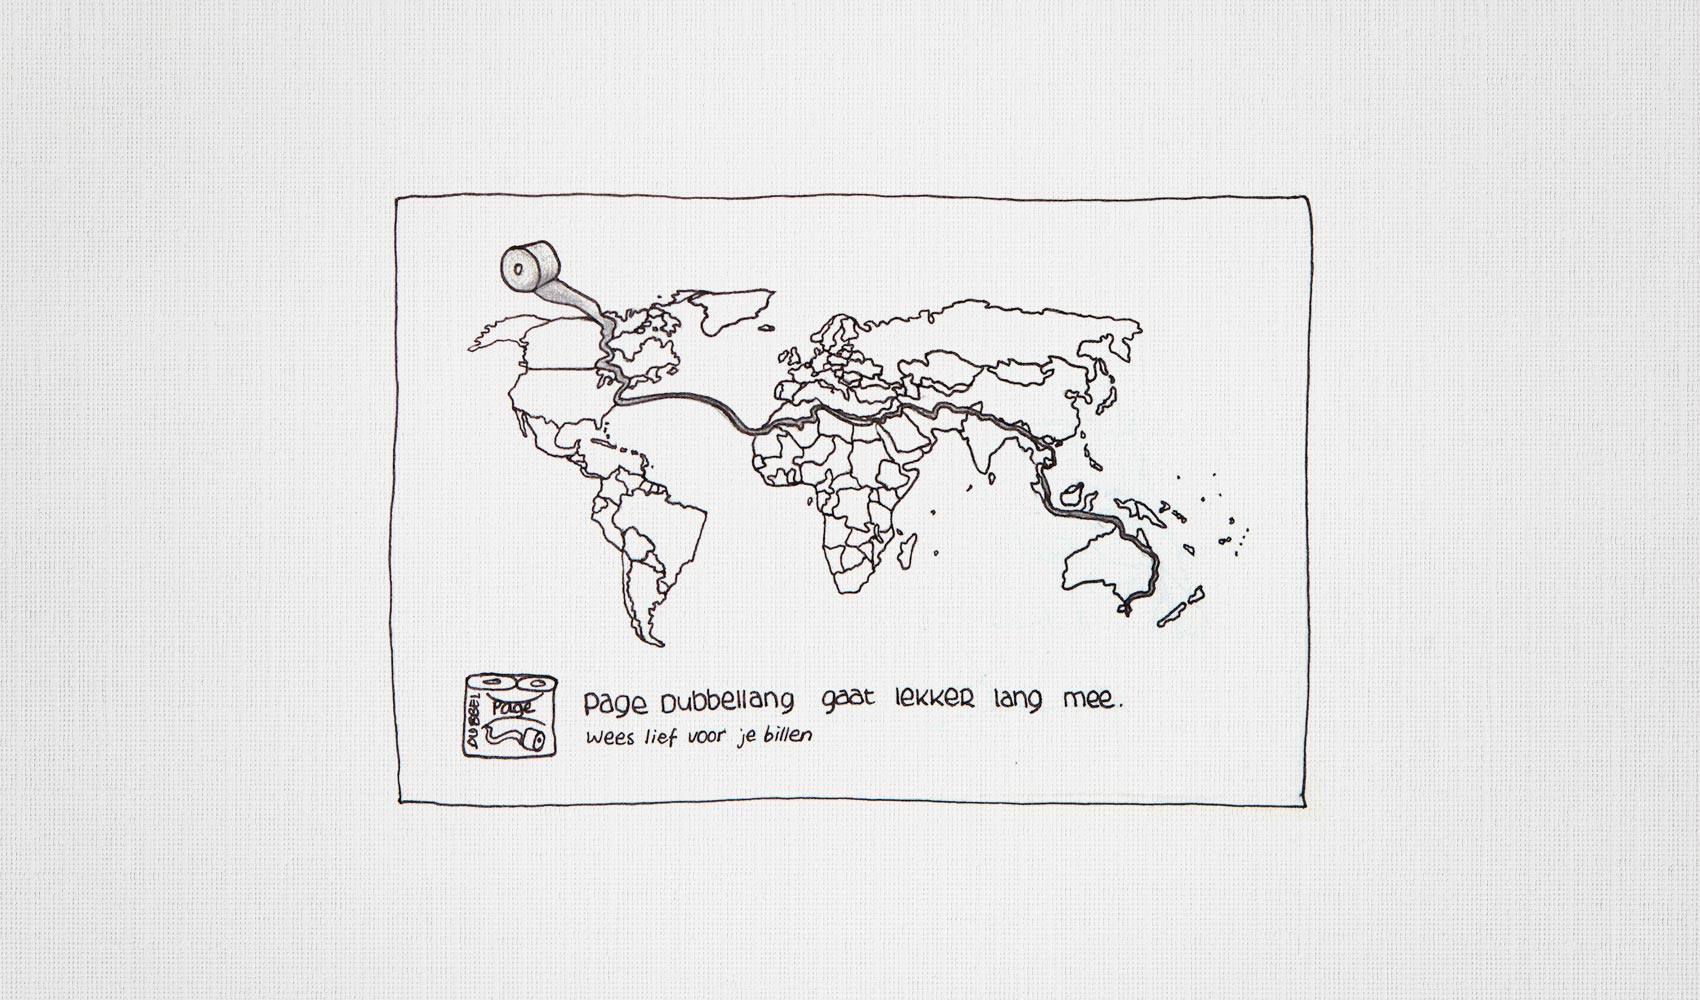 DUBBEL
Page
Page Dubbellang gaat lekker lang mee.
wees lief voor je billen